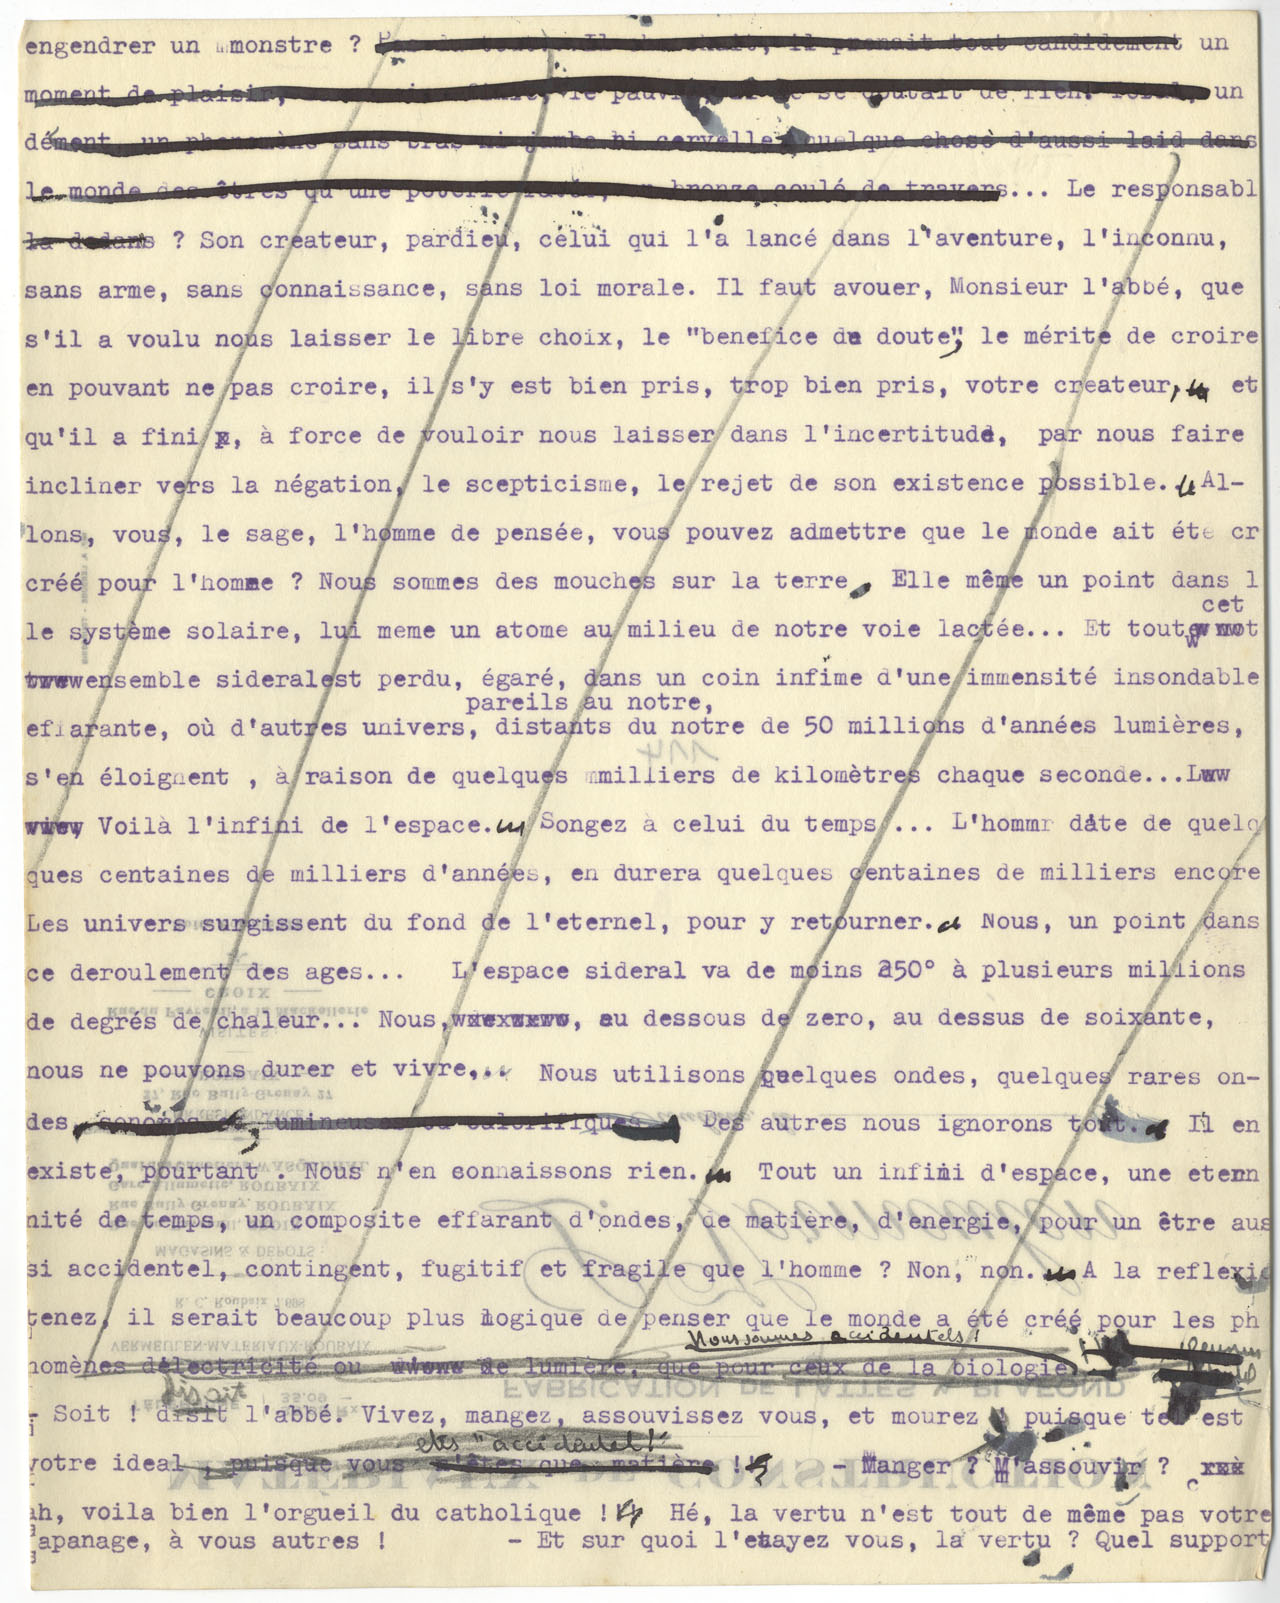 engendrer un monstre ? Pas du tout! Il cherchait, il prenait tout candidement un
moment de plaisir, le pauvre, il ne se doutait de rien! un
dément, un phenomène sans bras ni jambe ni cervelle, quelque chose d'aussi laid dans
le monde des êtres qu'une poterie ratée, un bronze coulé de travers... Le responsabl
la dedans ? Son createur, pardieu, celui qui l'a lancé dans l'aventure, l'inconnu,
sans arme, sans connaissance, sans loi morale. Il faut avouer, Monsieur l'abbé, que
s'il a voulu nous laisser le libre choix, le "benefice du doute", le mérite de croire
en pouvant ne pas croire, il s'y est bien pris, trop bien pris, votre createur, et
qu'il a fini, à force de vouloir nous laisser dans l'incertitude, par nous faire
incliner vers la négation, le scepticisme, le rejet de son existence possible.. Al-
lons, vous, le sage, l'homme de pensée, vous pouvez admettre que le monde ait éte cr
créé pour l'homme ? Nous sommes des mouches sur la terre. Elle même un point dans l
cet
le système solaire, lui meme un atome au milieu de notre voie lactée... Et tout
ensemble sideral est perdu, égaré, dans un coin infime d'une immensité insondable
pareils au notre,
effarante, où d'autres univers, distants du notre de 50 millions d'années lumières,
114
s'en éloignent , à raison de quelques milliers de kilomètres chaque seconde...
Voilà l'infini de l'espace. Songez à celui du temps ... L'hommr date de quelq
ques centaines de milliers d'années, en durera quelques centaines de milliers encore
Les univers surgissent du fond de l'eternel, pour y retourner. Nous, un point dans
ce deroulement des ages... L'espace sideral va de moins 250° à plusieurs millions
CROIX
de degrés de chaleur... Nous, au dessous de zero, au dessus de soixante,
nous ne pouvons durer et vivre... Nous utilisons quelques ondes, quelques rares on-
27, Rue Sully-Grenay 27
des, sonores, lumineuses ou calorifiques. Des autres nous ignorons tout. Il en
existe, pourtant . Nous n'en connaissons rien. Tout un infini d'espace, une etern
nité de temps, un composite effarant d'ondes, de matière, d'energie, pour un être aus
MAGASINS & DEPOTS :
si accidentel, contingent, fugitif et fragile que l'homme ? Non, non. A la reflexio
R. C. Roubaix 7.698
tenez, il serait beaucoup plus logique de penser que le monde a été créé pour les ph
Nous sommes accidentels !
VERMEULEN-MATERIAUX-ROUBAIX
nomènes délectricité ou de lumière, que pour ceux de la biologie
FABRICATION DE LATTES A PLAFOND
disait
- Soit ! disit l'abbé. Vivez, mangez, assouvissez vous, et mourez, puisque tel est
etes "accidentel!"
votre ideal, puisque vous n'êtes que matière ! - Manger ? M'assouvir ?
MATÉRIAUX DE CONSTRUCTION
ah, voila bien l'orgueil du catholique ! Hé, la vertu n'est tout de même pas votre
apanage, à vous autres ! - Et sur quoi l'etayez vous, la vertu ? Quel support